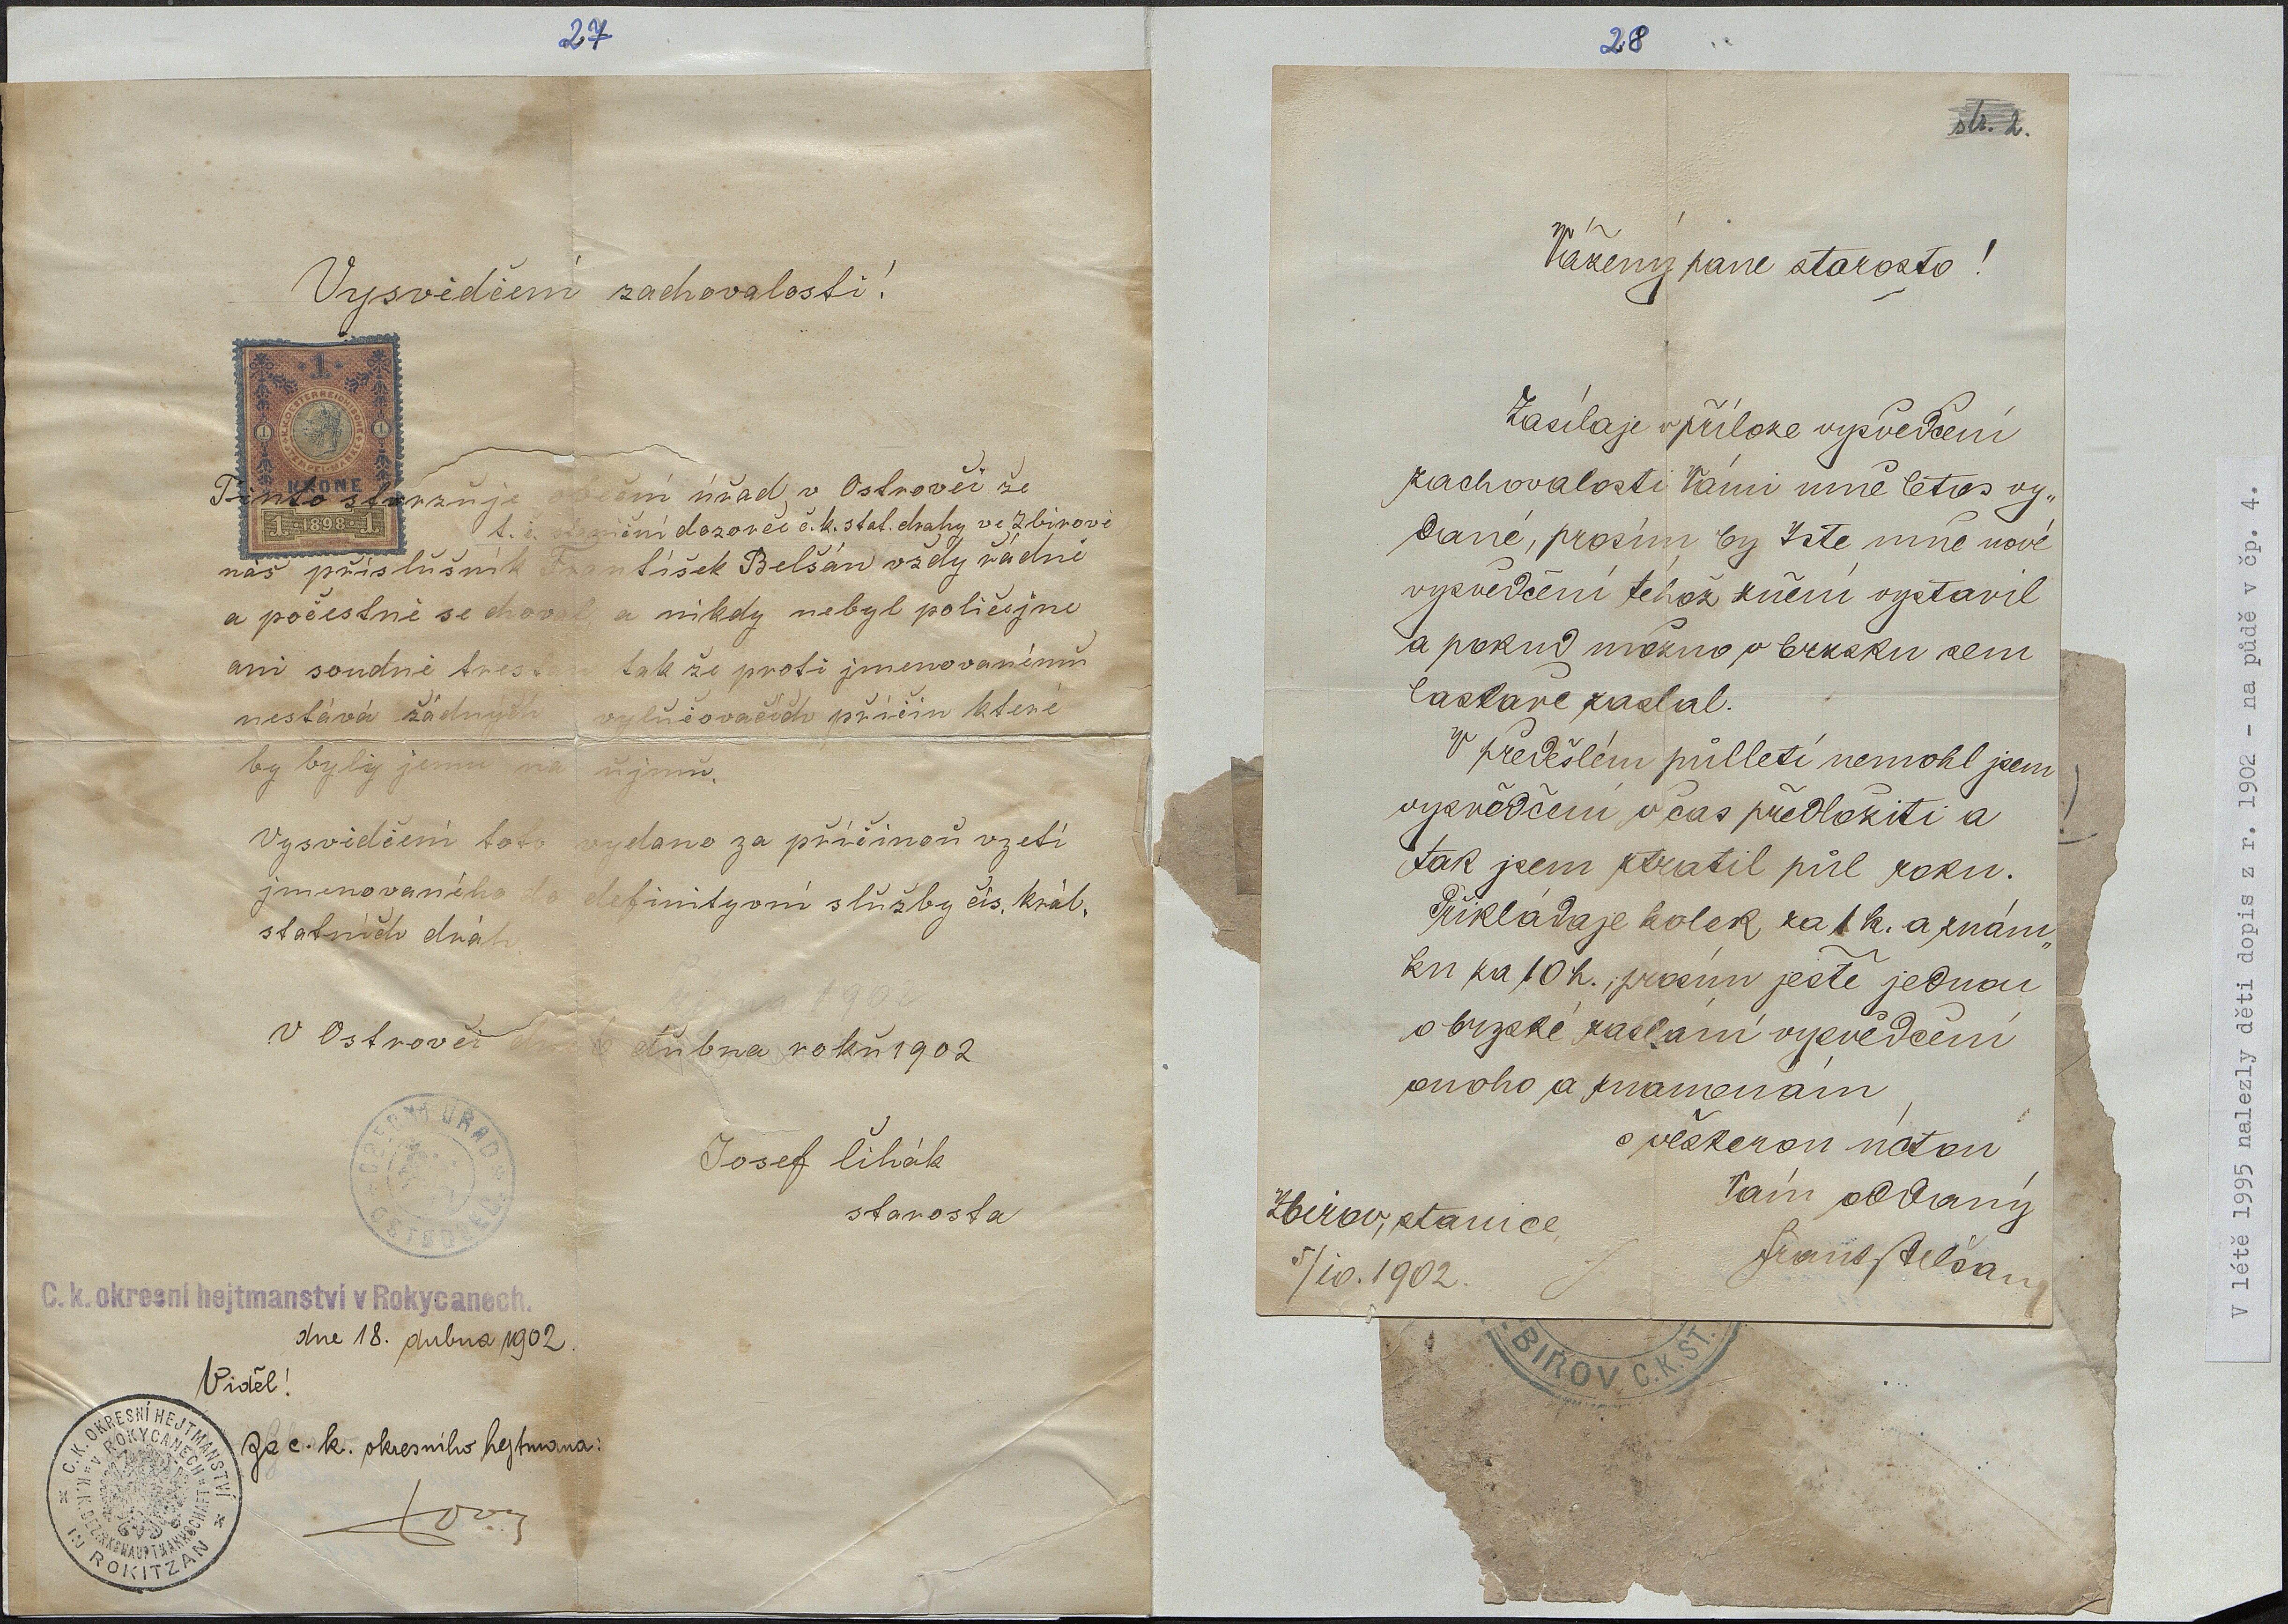 27
Vysvědčení zachovalosti!
1
K.K. OESTERREICHISCHE STEMPEL-MARKE
1 1
KRONE
1 · 1898 · 1
Tímto stvrzuje obecní úřad v Ostrovci že
t. č. staniční dozorce c. k. stat. drahy ve Zbirově
náš příslušník František Belšán vždy řádně
a počestně se choval a nikdy nebyl policejne
ani soudně trestán tak že proti jmenovanému
nestává žádných vylučovacích příčin které
by byly jemu na újmu.
Vysvědčení toto vydano za příčinou vzetí
jmenovaného do definityvní služby cís. král.
statních dráh
října 1902
V Ostrovci dne 6 dubna roku 1902
OBECNÍ ÚŘAD
OSTROVEC
Josef Čihák
starosta
C. k. okresní hejtmanství v Rokycanech.
dne 18. dubna 1902.
Viděl!
Za c. k. okresního hejtmana:
C.K. OKRESNÍ HEJTMANSTVÍ
V ROKYCANECH
K.K. BEZIRKSHAUPTMANNSCHAFT
IN ROKITZAN
28
str. 2.
Vážený pane starosto!
Zasílaje v příloze vysvědčení
zachovalosti Vámi mně letos vy„
dané, prosím by jste mně nové
vysvědčení téhož znění vystavil
a pokud možno v brzsku sem
laskavě zaslal.
V předešlém půlletí nemohl jsem
vysvědčení včas předložiti a
tak jsem ztratil půl roku.
Přikládaje kolek za 1 k. a znám„
ku za 10 h., prosím ještě jednou
o brzské zaslání vysvědčení
onoho a znamenám
s veškerou úctou
Vám oddaný
Frant Belšan
Zbirov, stanice,
5/IV. 1902.
BIROV C.K.ST.
V létě 1995 nalezly děti dopis z r. 1902 - na půdě v čp. 4.